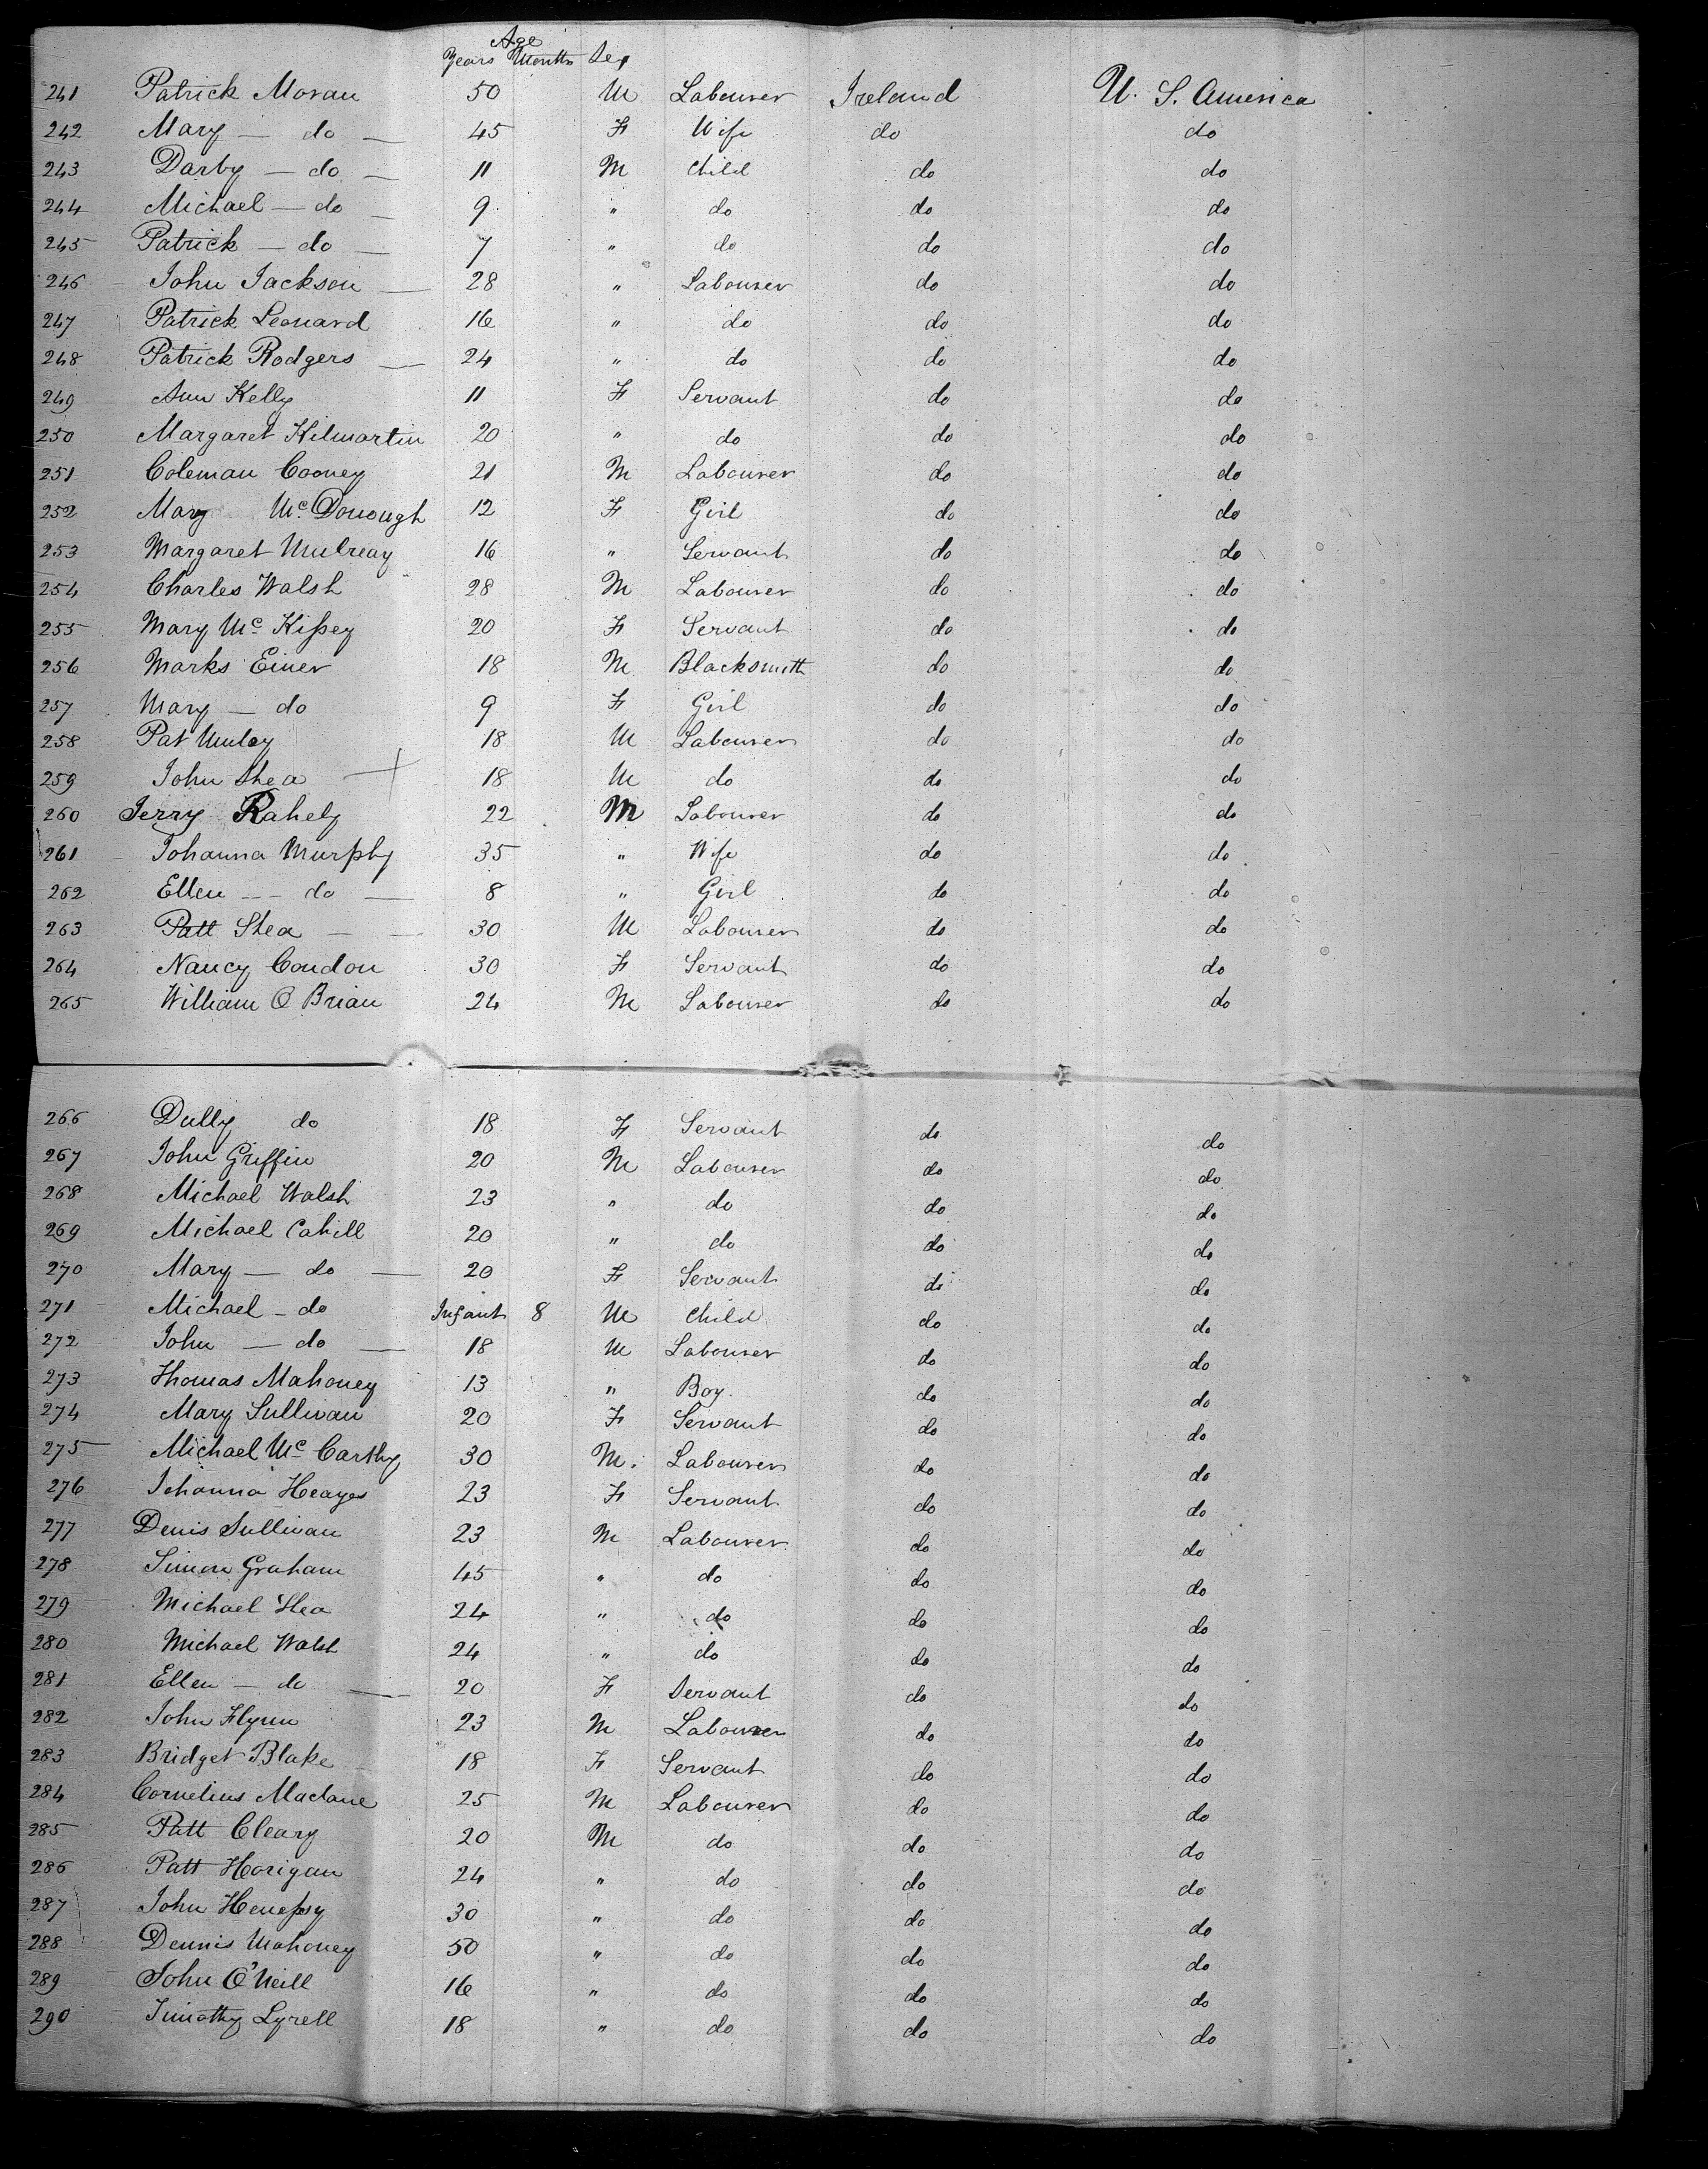 Age
Years Months Sex
241 Patrick Moran 50 M Labourer Ireland U. S. America
242 Mary — do — 45 F Wife do do
243 Darby — do — 11 M Child do do
244 Michael — do — 9 " do do do
245 Patrick — do — 7 " do do do
246 John Jackson — 28 " Labourer do do
247 Patrick Leonard 16 " do do do
248 Patrick Rodgers — 24 " do do do
249 Ann Kelly 11 F Servant do do
250 Margaret Kilmartin 20 " do do do
251 Coleman Cooney 21 M Labourer do do
252 Mary McDonough 12 F Girl do do
253 Margaret Mulreay 16 " Servant do do
254 Charles Walsh 28 M Labourer do do
255 Mary Mc Kissey 20 F Servant do do
256 Marks Einer 18 M Blacksmith do do
257 Mary — do 9 F Girl do do
258 Pat Muley 18 M Labourer do do
259 John Shea 18 M do do do
260 Jerry Rahely 22 M Labourer do do
261 Johanna Murphy 35 " Wife do do
262 Ellen — do — 8 " Girl do do
263 Patt Shea — 30 M Labourer do do
264 Nancy Condon 30 F Servant do do
265 William O Brian 24 M Labourer do do
266 Dully do 18 F Servant do do
267 John Griffin 20 M Labourer do do
268 Michael Walsh 23 " do do do
269 Michael Cahill 20 " do do do
270 Mary — do — 20 F Servant do do
271 Michael — do Infant 8 M Child do do
272 John — do — 18 M Labourer do do
273 Thomas Mahoney 13 " Boy. do do
274 Mary Sullivan 20 F Servant do do
275 Michael Mc Carthy 30 M. Labourer do do
276 Johanna Heayes 23 F Servant do do
277 Denis Sullivan 23 M Labourer do do
278 Simon Graham 45 " do do do
279 Michael Shea 24 " do do do
280 Michael Walsh 24 " do do do
281 Ellen — do — 20 F Servant do do
282 John Flynn 23 M Labourer do do
283 Bridget Blake 18 F Servant do do
284 Cornelius Maclane 25 M Labourer do do
285 Patt Cleary 20 M do do do
286 Patt Horigan 24 " do do do
287 John Henessy 30 " do do do
288 Dennis Mahoney 50 " do do do
289 John O'Neill 16 " do do do
290 Timothy Lyrell 18 " do do do